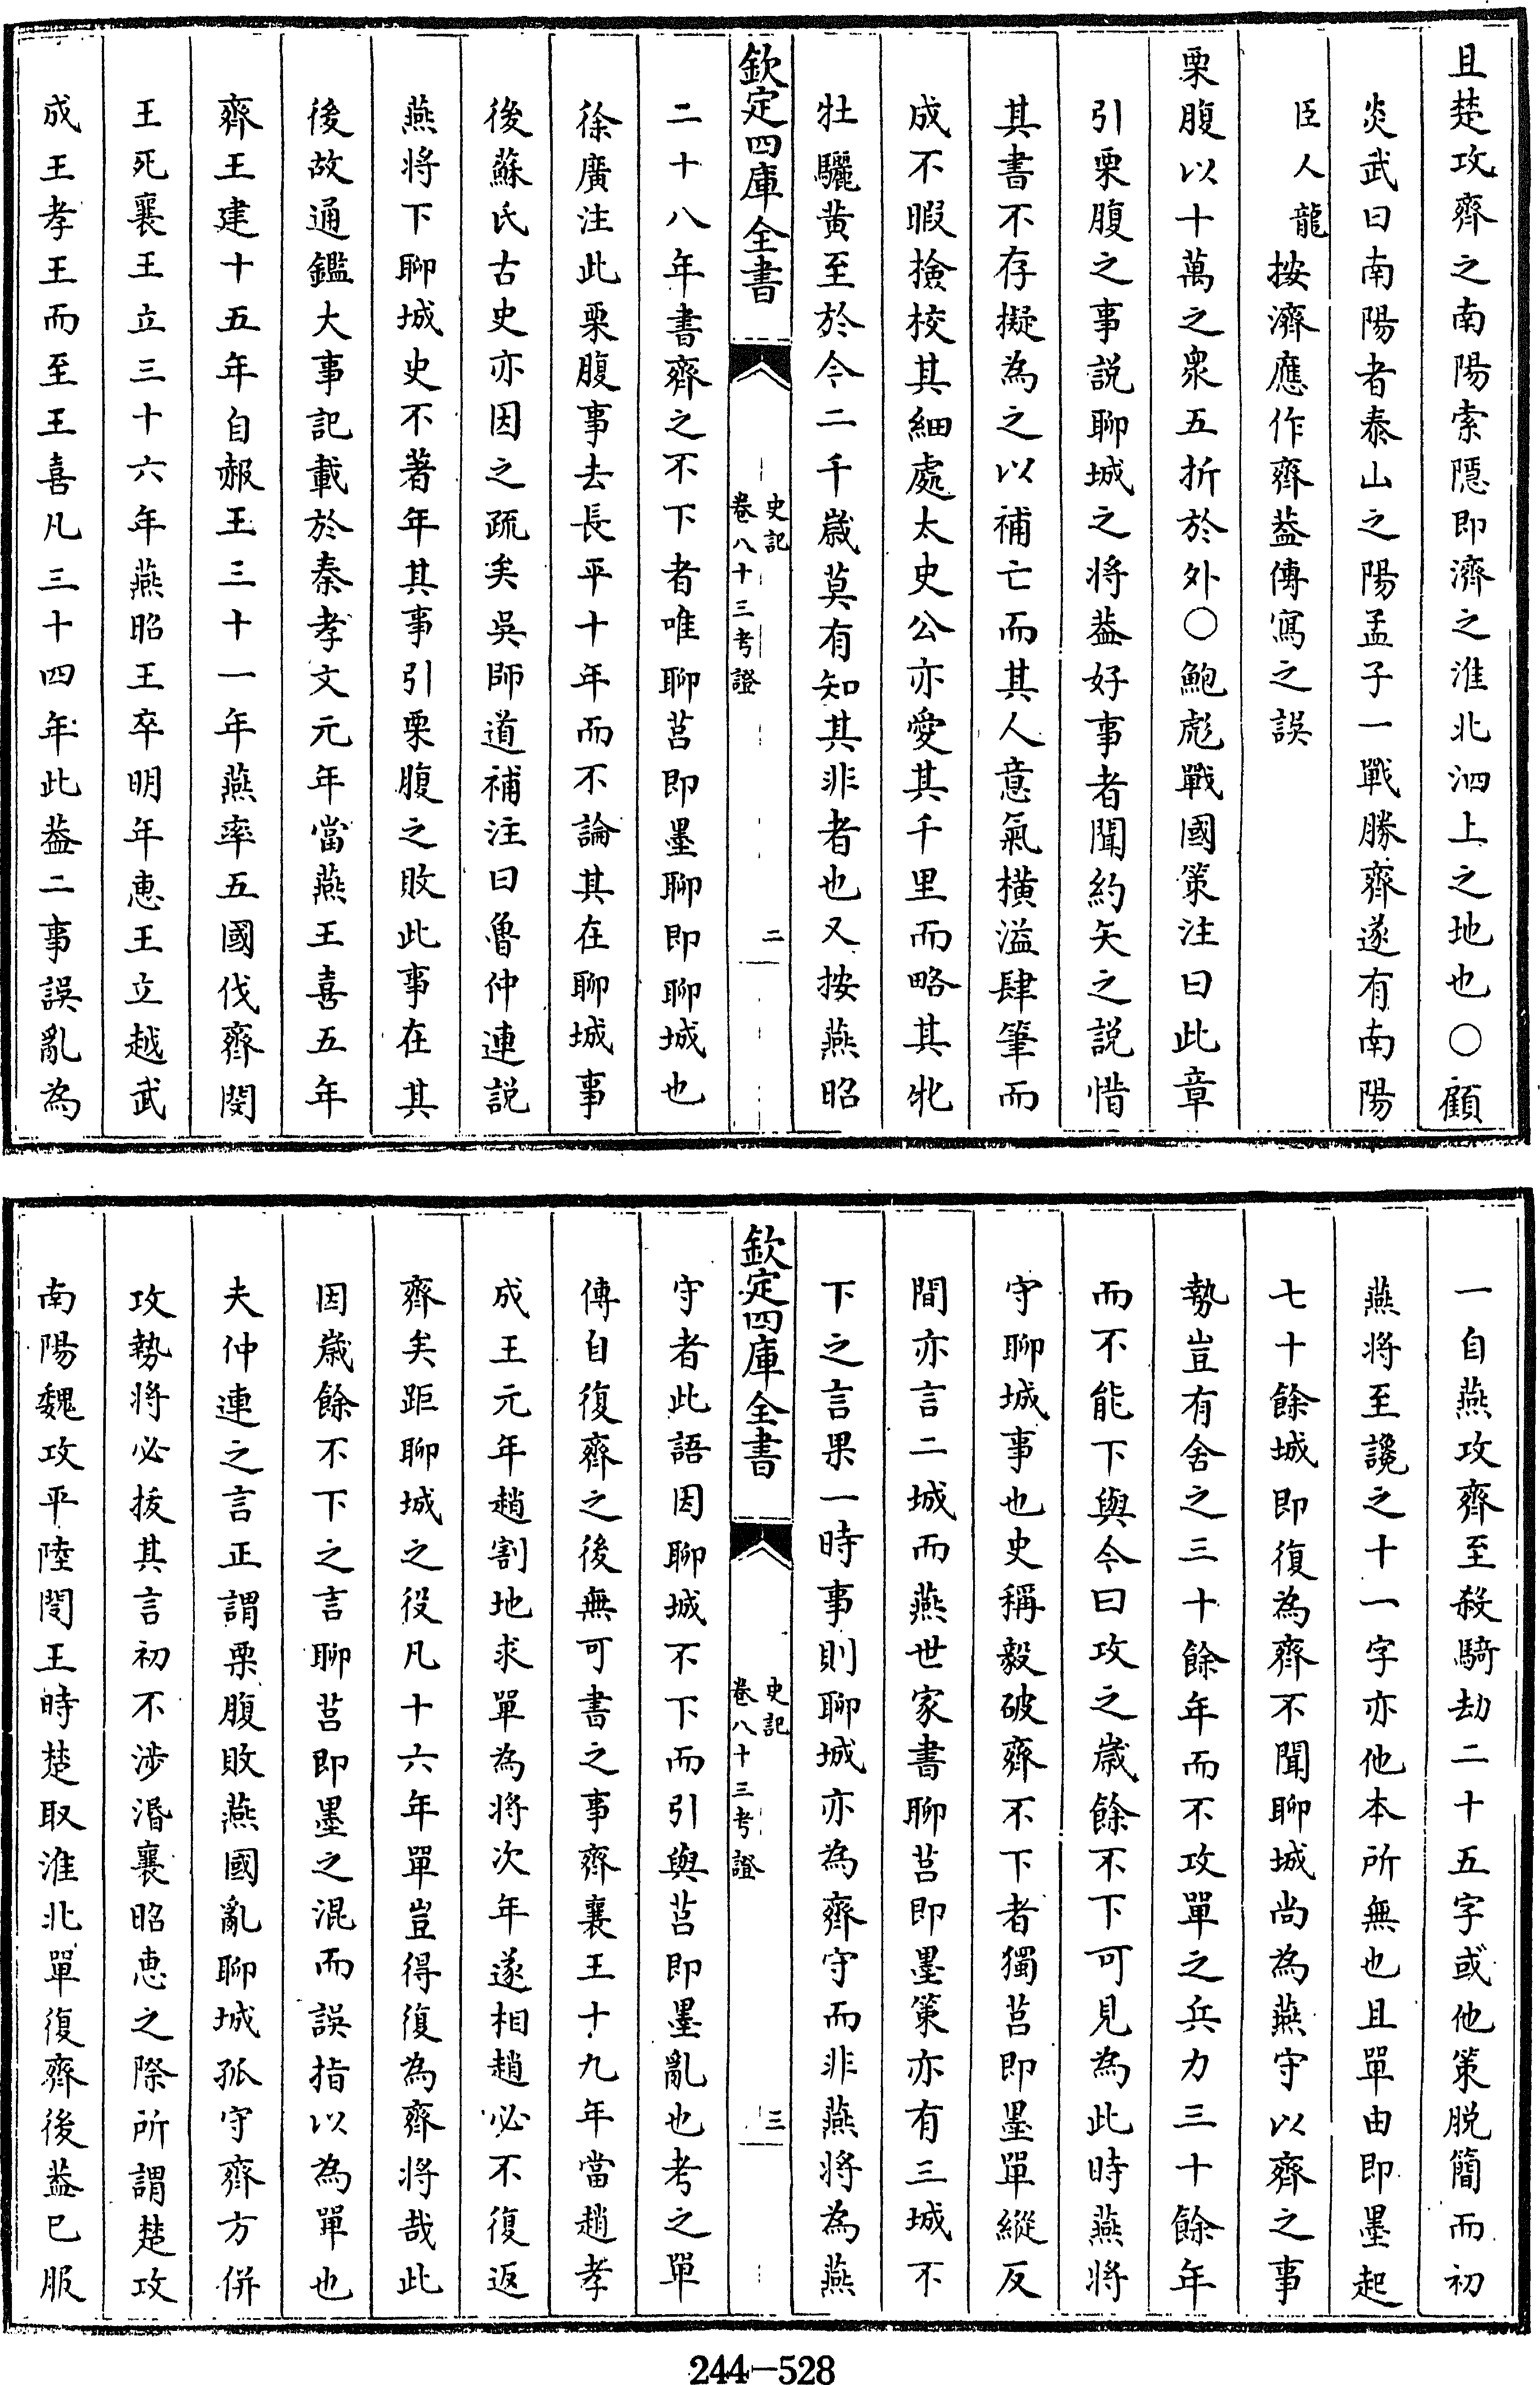 且楚攻齊之南陽索隱即濟之淮北泗上之地也○顧
炎武曰南陽者泰山之陽孟子一戰勝齊遂有南陽
臣人龍按濟應作齊葢傳寫之誤
栗腹以十萬之衆五折於外○鮑彪戰國策注曰此章
引栗腹之事説聊城之将葢好事者聞約矢之説惜
其書不存擬為之以補亡而其人意氣横溢肆筆而
成不暇撿校其細處太史公亦愛其千里而略其牝
牡驪黄至於今二千嵗莫有知其非者也又按燕昭
欽定四庫全書
史記
卷八十三考證
二
二十八年書齊之不下者唯聊莒即墨聊即聊城也
徐廣注此栗腹事去長平十年而不論其在聊城事
後蘇氏古史亦因之疏矣吳師道補注曰魯仲連説
燕将下聊城史不著年其事引栗腹之敗此事在其
後故通鑑大事記載於秦孝文元年當燕王喜五年
齊王建十五年自赧王三十一年燕率五國伐齊閔
王死襄王立三十六年燕昭王卒明年恵王立越武
成王孝王而至王喜凡三十四年此葢二事誤亂為
一自燕攻齊至殺騎劫二十五字或他策脱簡而初
燕将至讒之十一字亦他本所無也且單由即墨起
七十餘城即復為齊不聞聊城尚為燕守以齊之事
勢豈有舍之三十餘年而不攻單之兵力三十餘年
而不能下與今曰攻之嵗餘不下可見為此時燕将
守聊城事也史稱毅破齊不下者獨莒即墨單縱反
間亦言二城而燕世家書聊莒即墨策亦有三城不
下之言果一時事則聊城亦為齊守而非燕将為燕
欽定四庫全書
史記
卷八十三考證
三
守者此語因聊城不下而引與莒即墨亂也考之單
傳自復齊之後無可書之事齊襄王十九年當趙孝
成王元年趙割地求單為将次年遂相趙必不復返
齊矣距聊城之役凡十六年單豈得復為齊将哉此
因嵗餘不下之言聊莒即墨之混而誤指以為單也
夫仲連之言正謂栗腹敗燕國亂聊城孤守齊方併
攻勢将必拔其言初不渉湣襄昭恵之際所謂楚攻
南陽魏攻平陸閔王時楚取淮北單復齊後葢已服
244-528